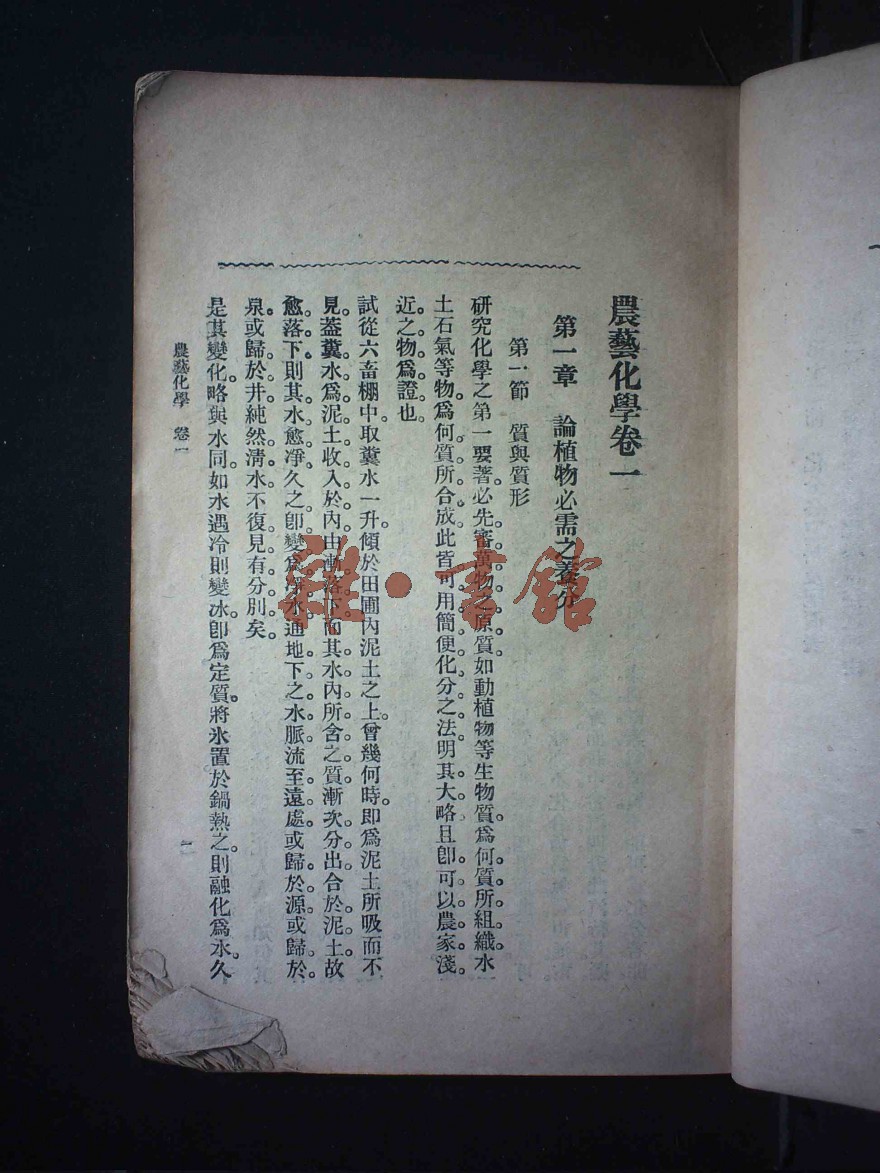 農藝化學卷一
第一章　論植物必需之養分
第一節　質與質形
研究化學之第一要著。必先審萬物之原質如動植物等生物質。爲何質所組織水
土石氣等物。爲何質所合成此皆可用簡便化分之法。明其大略且卽可以農家淺
近之物爲證也。
試從六畜棚中取糞水一升。傾於田圃內泥土之上。曾幾何時。即爲泥土所吸而不
見。葢糞水爲泥土收入於內。由漸落下。而其水內所含之質。漸次分出。合於泥土。故
愈落下。則其水愈凈。久之卽變爲凈水。通地下之水脈。流至遠處。或歸於源。或歸於
泉。或歸於井。純然清水。不復見有分別矣。
是其變化略與水同。如水遇冷則變冰。卽爲定質。將氷置於鍋熱之。則融化爲水。久
農藝化學　卷一
一
雜·書館